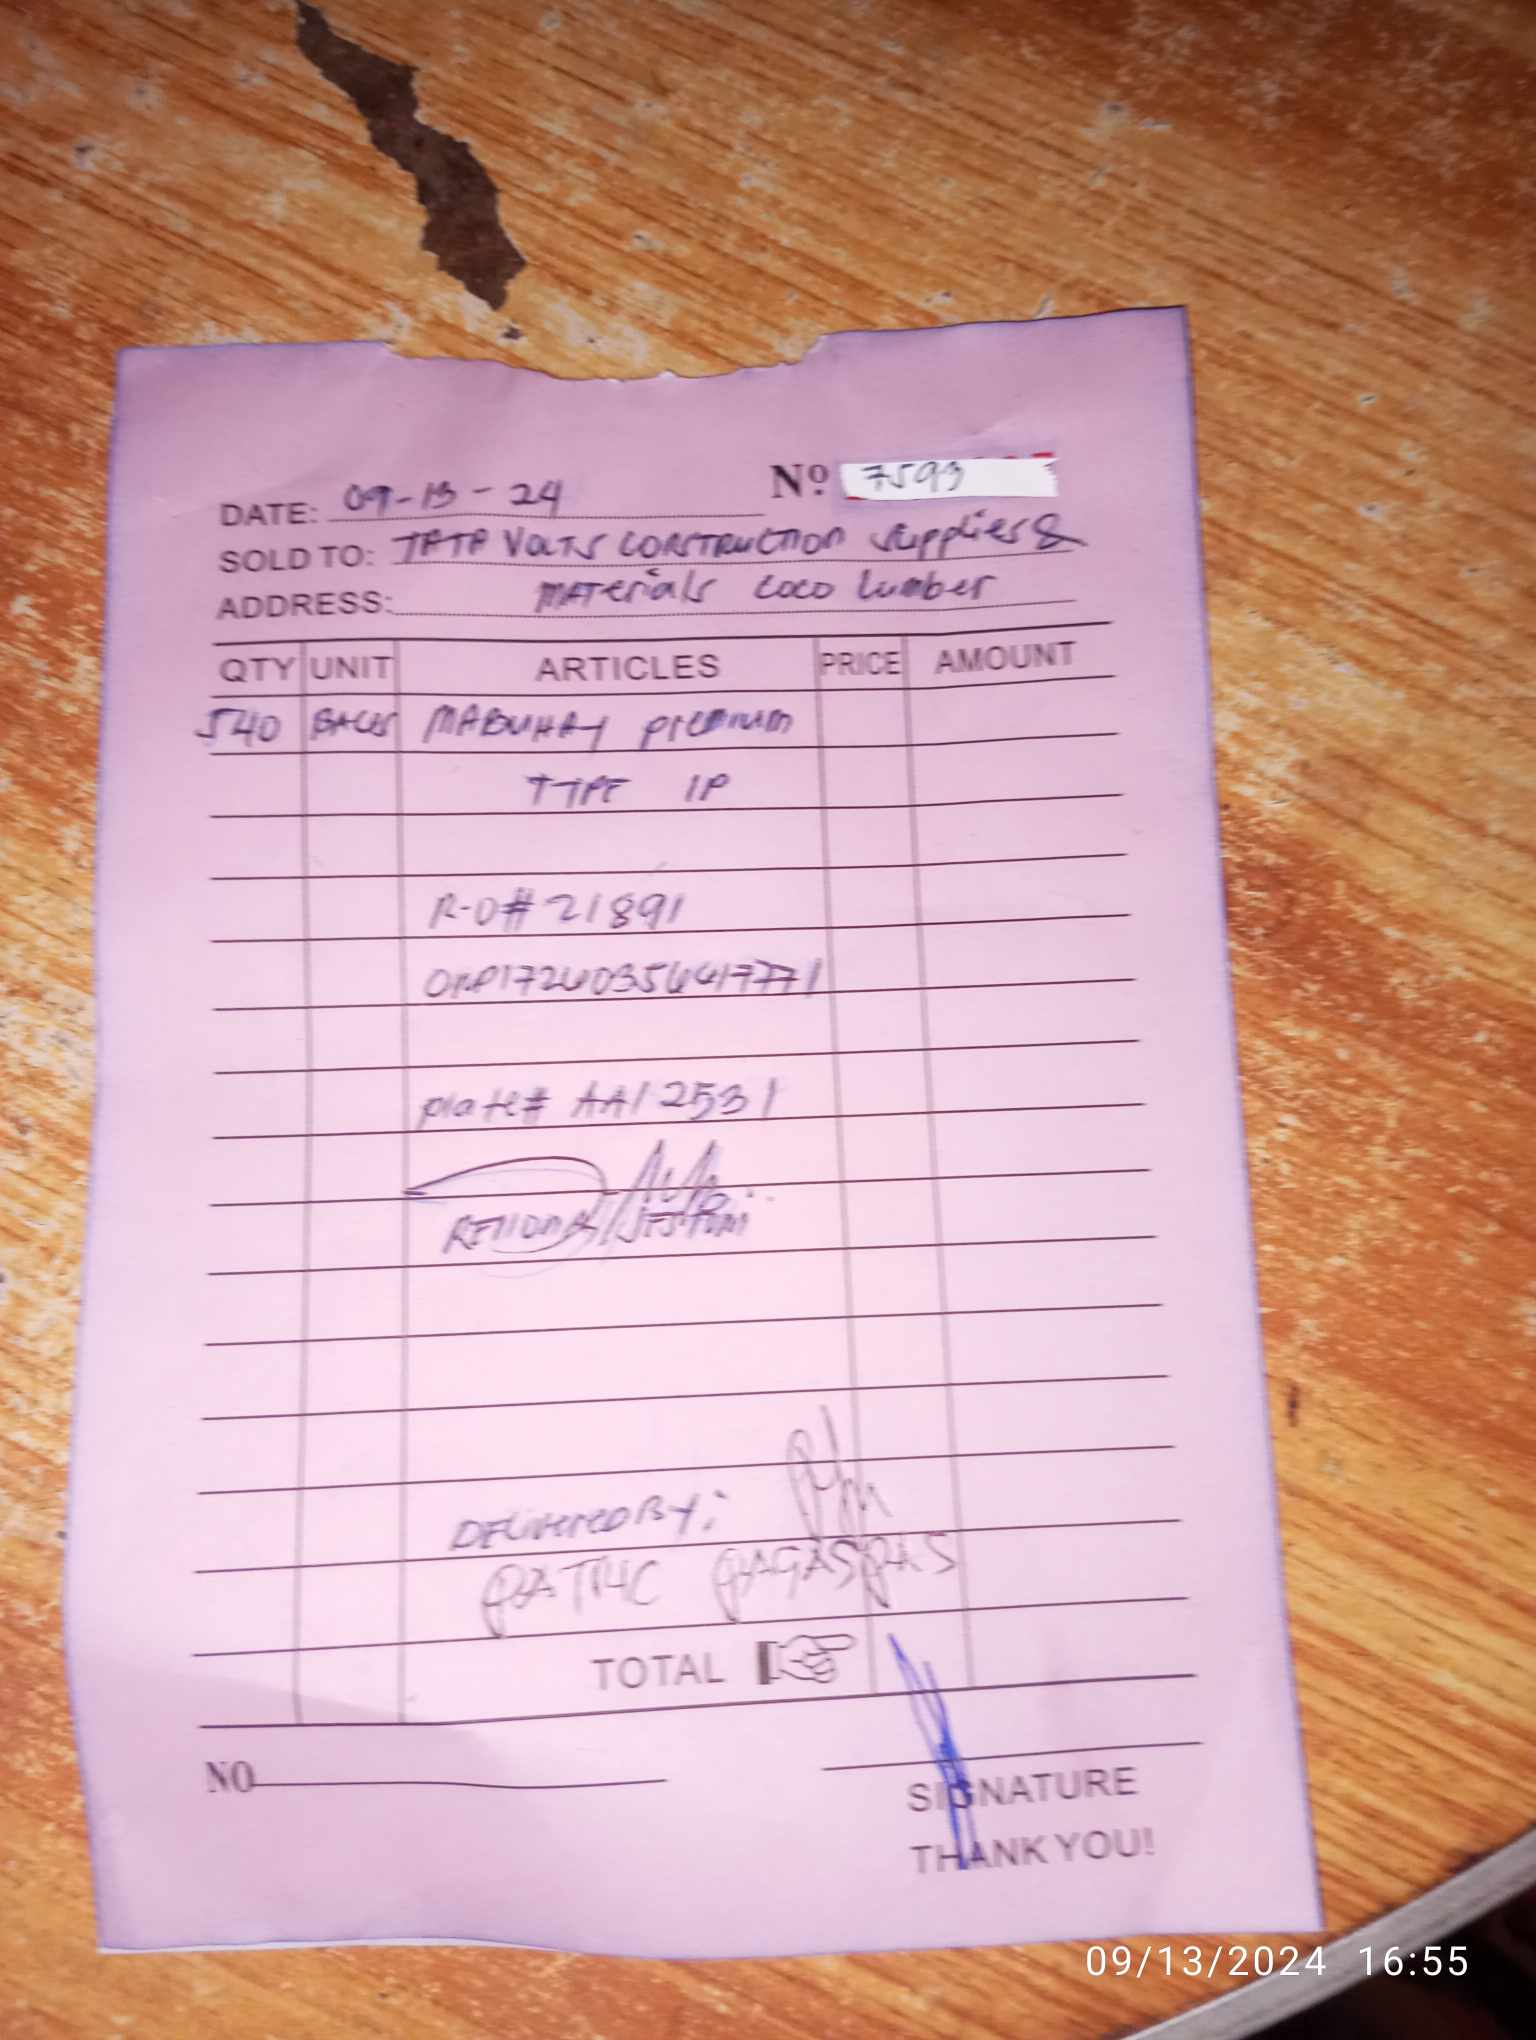 Nº 7593
DATE: 09-13-24
SOLD TO: TATA VOLTS CONSTRUCTION Supplies &
ADDRESS: MATerials coco lumber
QTY UNIT ARTICLES PRICE AMOUNT
540 BAGS MABUHAY premium
TYPE 1P
R-O# 21891
plate# AAI 2531
DELivereD BY:
TOTAL
NO
SIGNATURE
THANK YOU!
09/13/2024 16:55